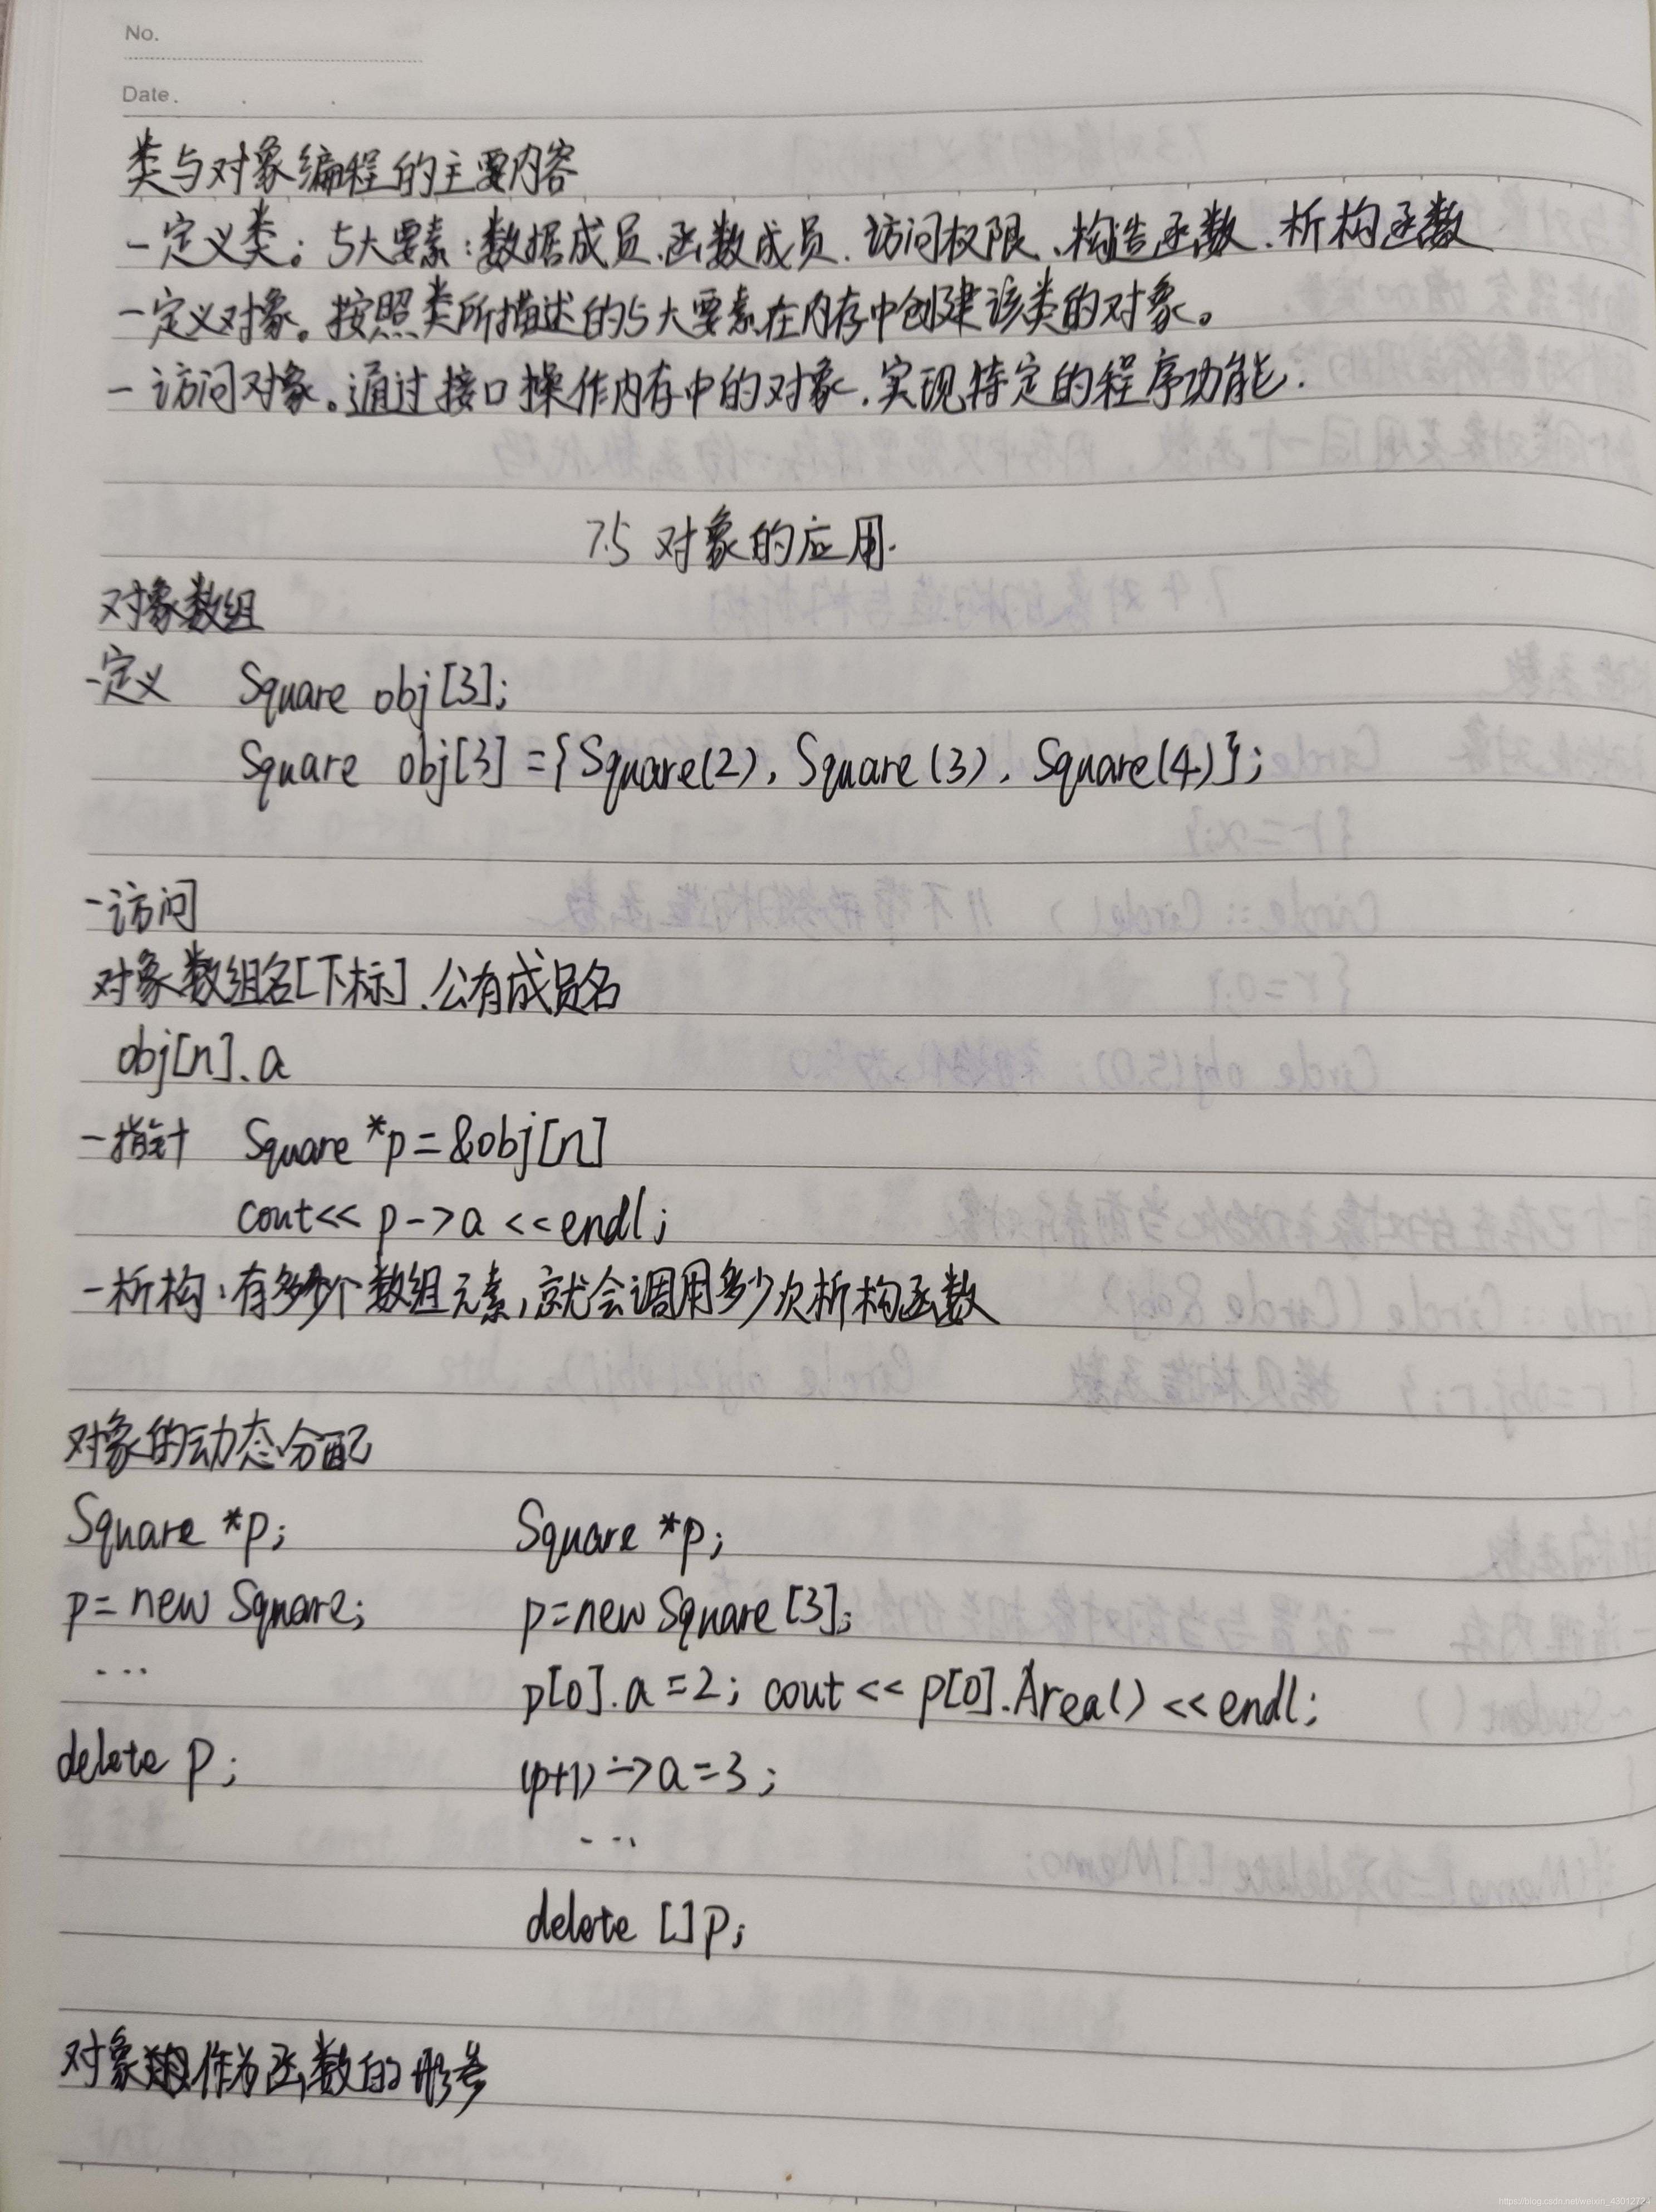 No.
Date.
类与对象编程的主要内容
-定义类。5大要素:数据成员、函数成员、访问权限、构造函数、析构函数
-定义对象。按照类所描述的5大要素在内存中创建该类的对象。
-访问对象。通过接口操作内存中的对象,实现特定的程序功能.
7.5 对象的应用.
对象数组
-定义 Square obj[3];
Square obj[3]={Square(2), Square(3), Square(4)};
-访问
对象数组名[下标].公有成员名
obj[n].a
-指针 Square *p=&obj[n]
cout<< p->a <<endl;
-析构:有多少个数组元素,就会调用多少次析构函数
对象的动态分配
Square *p;
p= new Square;
...
delete p;
Square *p;
p=new Square[3];
p[0].a=2; cout << p[0].Area() <<endl;
(p+1)->a=3;
...
delete []p;
对象作为函数的形参
https://blog.csdn.net/weixin_43012724